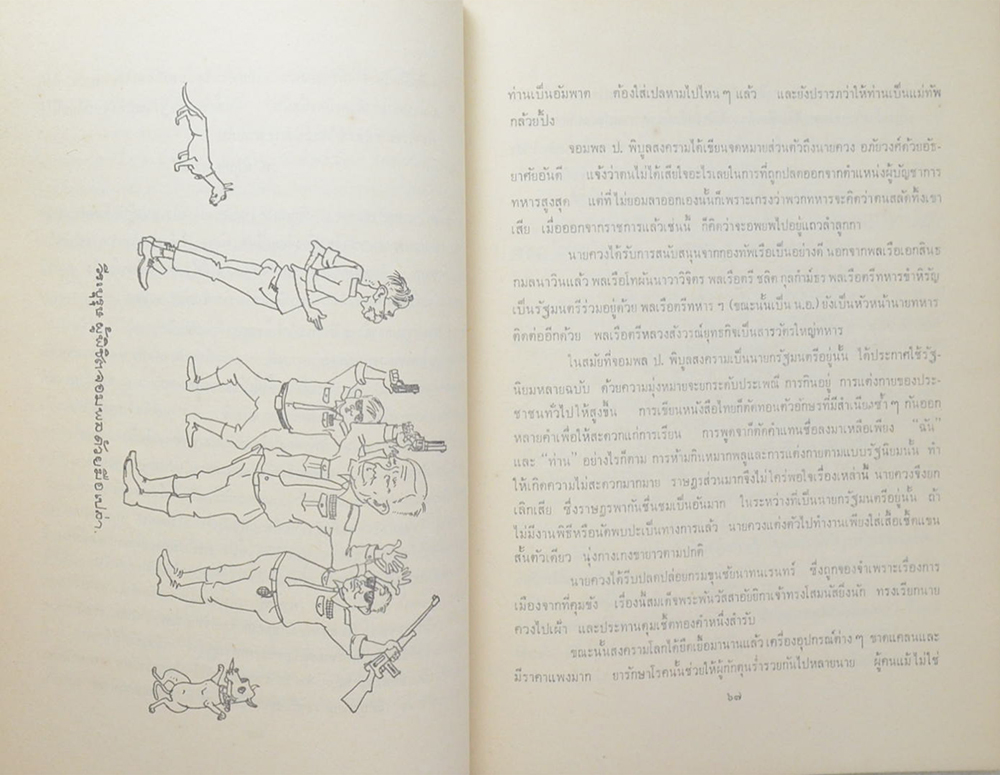 วีรบุรุษ ผู้พิชิตจอมพลด้วยมือเปล่า.
ท่านเป็นอัมพาต ต้องใส่เปลหามไปไหน ๆ แล้ว และยังปรารภว่าให้ท่านเป็นแม่ทัพ
กล้วยปิ้ง
จอมพล ป. พิบูลสงครามได้เขียนจดหมายส่วนตัวถึงนายควง อภัยวงศ์ด้วยอัธ-
ยาศัยอันดี แจ้งว่าตนไม่ได้เสียใจอะไรเลยในการที่ถูกปลดออกจากตำแหน่งผู้บัญชาการ
ทหารสูงสุด แต่ที่ไม่ยอมลาออกเองนั้นก็เพราะเกรงว่าพวกทหารจะคิดว่าตนสลัดทิ้งเขา
เสีย เมื่อออกจากราชการแล้วเช่นนี้ ก็คิดว่าจะอพยพไปอยู่แถวลำลูกกา
นายควงได้รับการสนับสนุนจากกองทัพเรือเป็นอย่างดี นอกจากพลเรือเอกสินธ
กมลนาวินแล้ว พลเรือโทผันนาวาวิจิตร พลเรือตรี ชลิต กุลกำม์ธร พลเรือตรีทหารขำหิรัญ
เป็นรัฐมนตรีร่วมอยู่ด้วย พลเรือตรีทหาร ฯ (ขณะนั้นเป็น น.อ.) ยังเป็นหัวหน้านายทหาร
ติดต่ออีกด้วย พลเรือตรีหลวงสังวรณ์ยุทธกิจเป็นสารวัตรใหญ่ทหาร
ในสมัยที่จอมพล ป. พิบูลสงครามเป็นนายกรัฐมนตรีอยู่นั้น ได้ประกาศใช้รัฐ-
นิยมหลายฉบับ ด้วยความมุ่งหมายจะยกระดับประเพณี การกินอยู่ การแต่งกายของประ-
ชาชนทั่วไปให้สูงขึ้น การเขียนหนังสือไทยก็ตัดทอนตัวอักษรที่มีสำเนียงซ้ำ ๆ กันออก
หลายคำเพื่อให้สะดวกแก่การเรียน การพูดจาก็ตัดคำแทนชื่อลงมาเหลือเพียง “ฉัน”
และ “ท่าน” อย่างไรก็ตาม การห้ามกินหมากพลูและการแต่งกายตามแบบรัฐนิยมนั้น ทำ
ให้เกิดความไม่สะดวกมากมาย ราษฎรส่วนมากจึงไม่ใคร่พอใจเรื่องเหล่านี้ นายควงจึงยก
เลิกเสีย ซึ่งราษฎรพากันชื่นชมเป็นอันมาก ในระหว่างที่เป็นนายกรัฐมนตรีอยู่นั้น ถ้า
ไม่มีงานพิธีหรือนัดพบปะเป็นทางการแล้ว นายควงแต่งตัวไปทำงานเพียงใส่เสื้อเชิ้ตแขน
สั้นตัวเดียว นุ่งกางเกงขายาวตามปกติ
นายควงได้รีบปลดปล่อยกรมขุนชัยนาทนเรนทร์ ซึ่งถูกจองจำเพราะเรื่องการ
เมืองจากที่คุมขัง เรื่องนี้สมเด็จพระพันวัสสาอัยยิกาเจ้าทรงโสมนัสยิ่งนัก ทรงเรียกนาย
ควงไปเฝ้า และประทานดุมเชิ้ตทองคำหนึ่งสำรับ
ขณะนั้นสงครามโลกได้ยืดเยื้อมานานแล้ว เครื่องอุปกรณ์ต่าง ๆ ขาดแคลนและ
มีราคาแพงมาก ยารักษาโรคนั้นช่วยให้ผู้กักตุนร่ำรวยกันไปหลายนาย ผู้คนแม้ไม่ใช่
๖๗